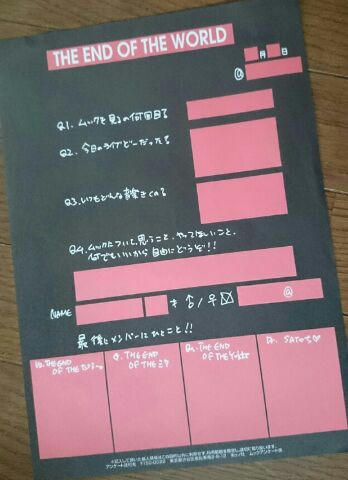 THE END OF THE WORLD
月 日
@
Q1. ムックを見るの何回目?
Q2. 今日のライブどーだった?
Q3. いつもどんな音聴きくの?
Q4. ムックについて思うこと、やってほしいこと、
何でもいいから自由にどうぞ!!
NAME 才 ♂/♀ @
最後にメンバーにひとこと!!
Vo. THE END OF THE
G. THE END OF THE ミヤ
Ba. THE END OF THE YUKKE
Dr. SATOち♡
アンケート送付先 〒150-0022